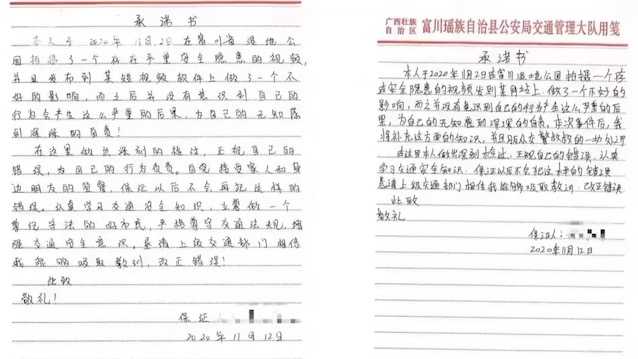 承诺书
2020年11月2日在富川省湿地公
园拍摄了一个存在严重安全隐患的视频,
并且发布到某短视频软件上做了一个不
好的影响,而之后并没有意识到自己的
行为会产生这么严重的后果,为自己的无知感
到深深的自责!
在这里做出深刻的检讨,正视自己的
错误,为自己的行为负责。自觉接受家人和身
边朋友的监督,保证以后不会再犯这样的
错误。认真学习交通安全知识,立誓做一个
遵纪守法的好市民,严格遵守交通法规,增
强交通安全意识,恳请上级交通部门相信
我能够吸取教训,改正错误!
此致
敬礼!
保证
2020年11月12日
广西壮族
自治区 富川瑶族自治县公安局交通管理大队用笺
承诺书
本人于2020年11月2日在富川湿地公园拍摄一个存
在安全隐患的视频发到某网站上做了一个不好的
影响,而之后没有意识到自己的行为会这么严重的后
果,为自己的无知感到深深的自责,本次事件后,我
将补充这方面的知识,并且服从交警
对这里本人做出深刻检讨,正视自己的错误,认真
学习交通安全知识。保证以后不会犯这样的错误
恳请上级交通部门相信我能够吸取教训,改正错误
此致
敬礼
保证人:
2020年11月12日